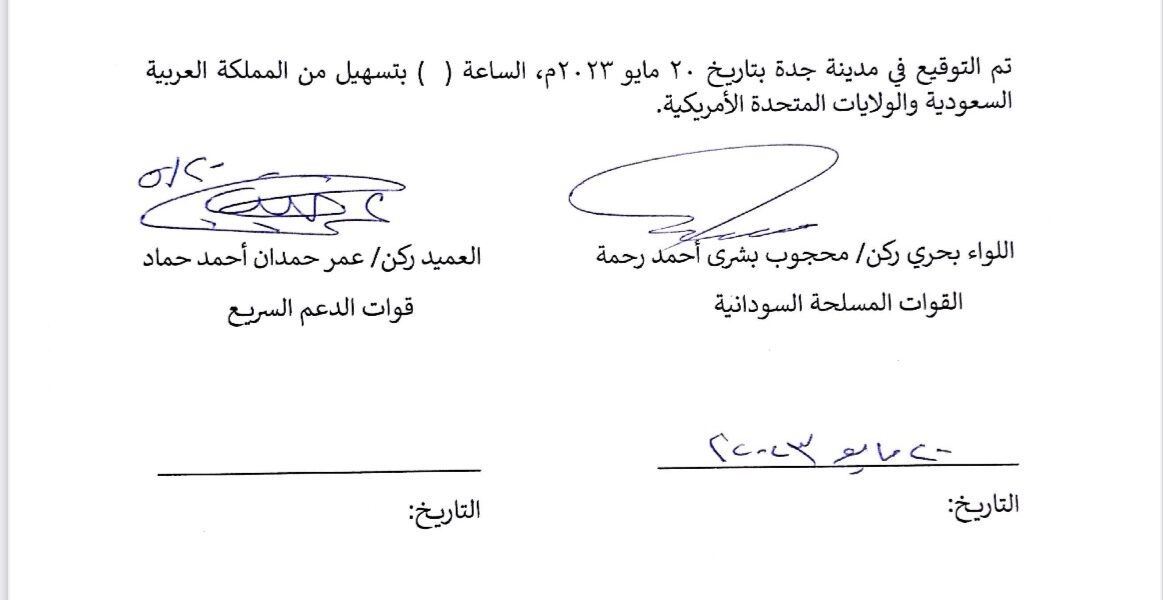 تم التوقيع في مدينة جدة بتاريخ ٢٠ مايو ٢٠٢٣م، الساعة (  ) بتسهيل من المملكة العربية
السعودية والولايات المتحدة الأمريكية.
٥/٢٠
اللواء بحري ركن/ محجوب بشرى أحمد رحمة
القوات المسلحة السودانية
العميد ركن/ عمر حمدان أحمد حماد
قوات الدعم السريع
٢٠ مايو ٢٠٢٣
التاريخ:
التاريخ: